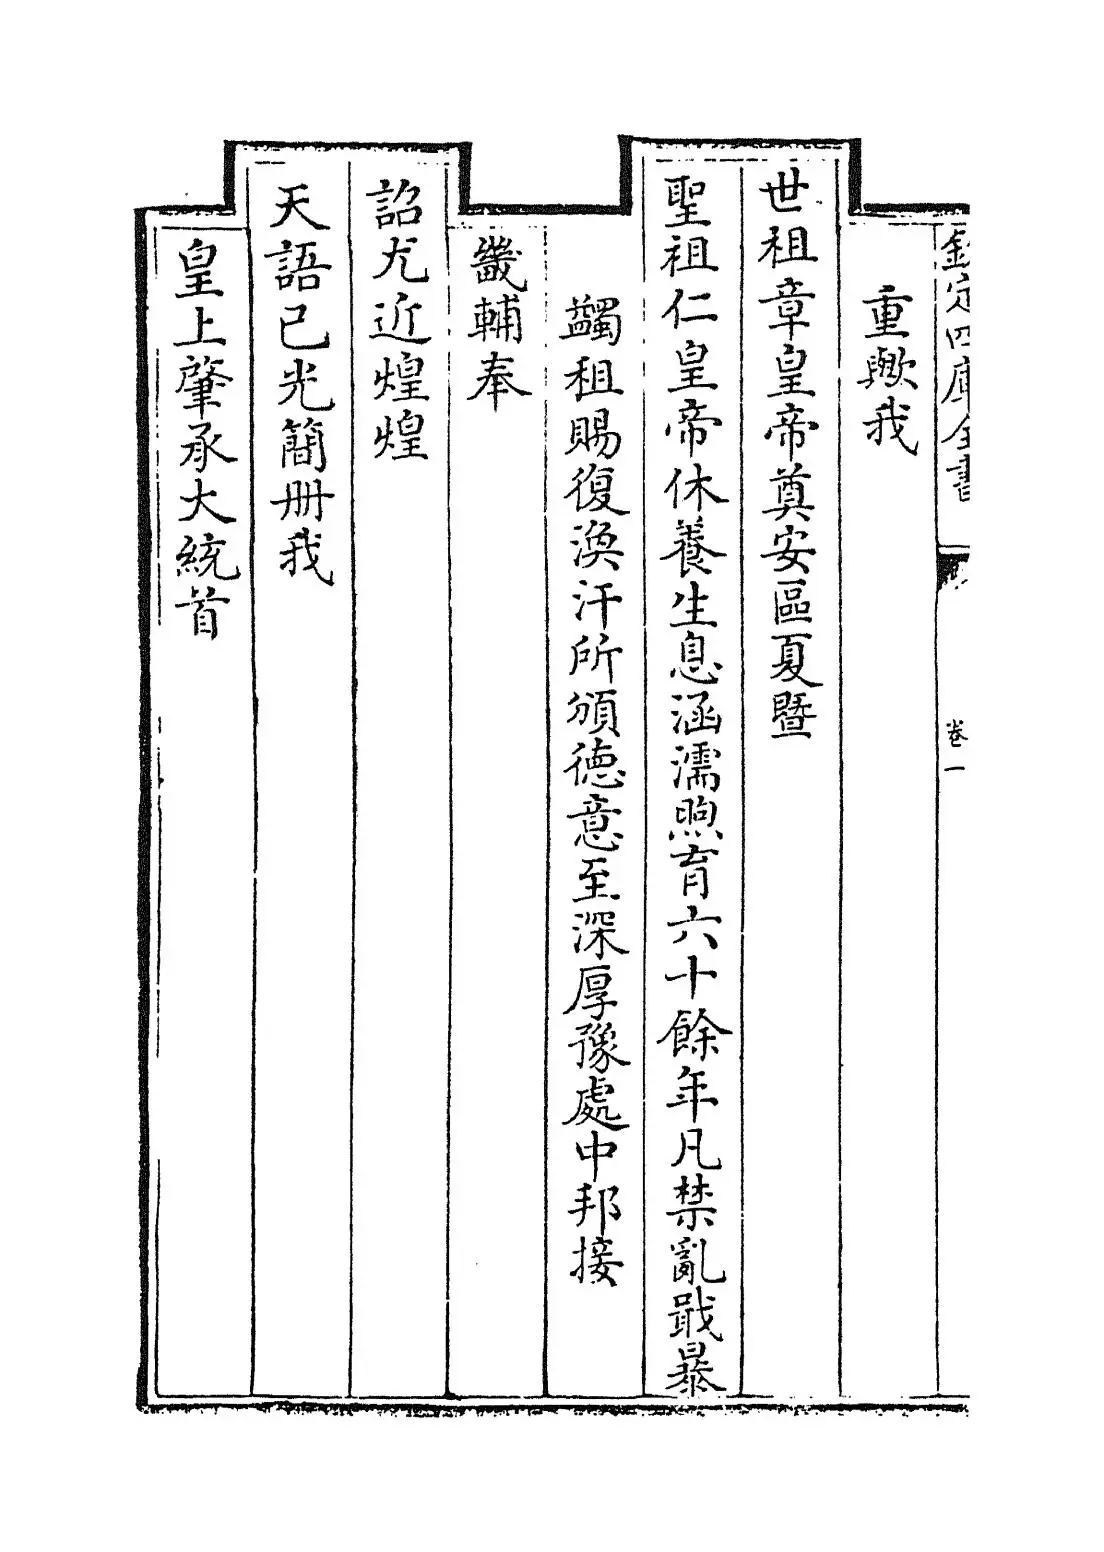 欽定四庫全書
卷一
重歟我
世祖章皇帝奠安區夏暨
聖祖仁皇帝休養生息涵濡煦育六十餘年凡禁亂戢暴
蠲租賜復渙汗所頒德意至深厚豫處中邦接
畿輔奉
詔尤近煌煌
天語已光簡册我
皇上肇承大統首